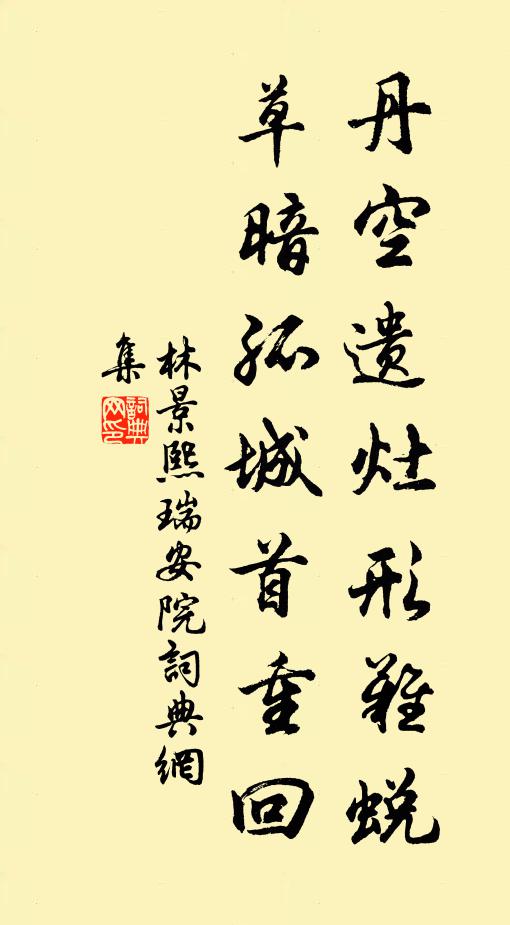 丹空遺灶形難蛻
草暗孤城首重回
林景熙瑞安院詞典網
集
詞典網印